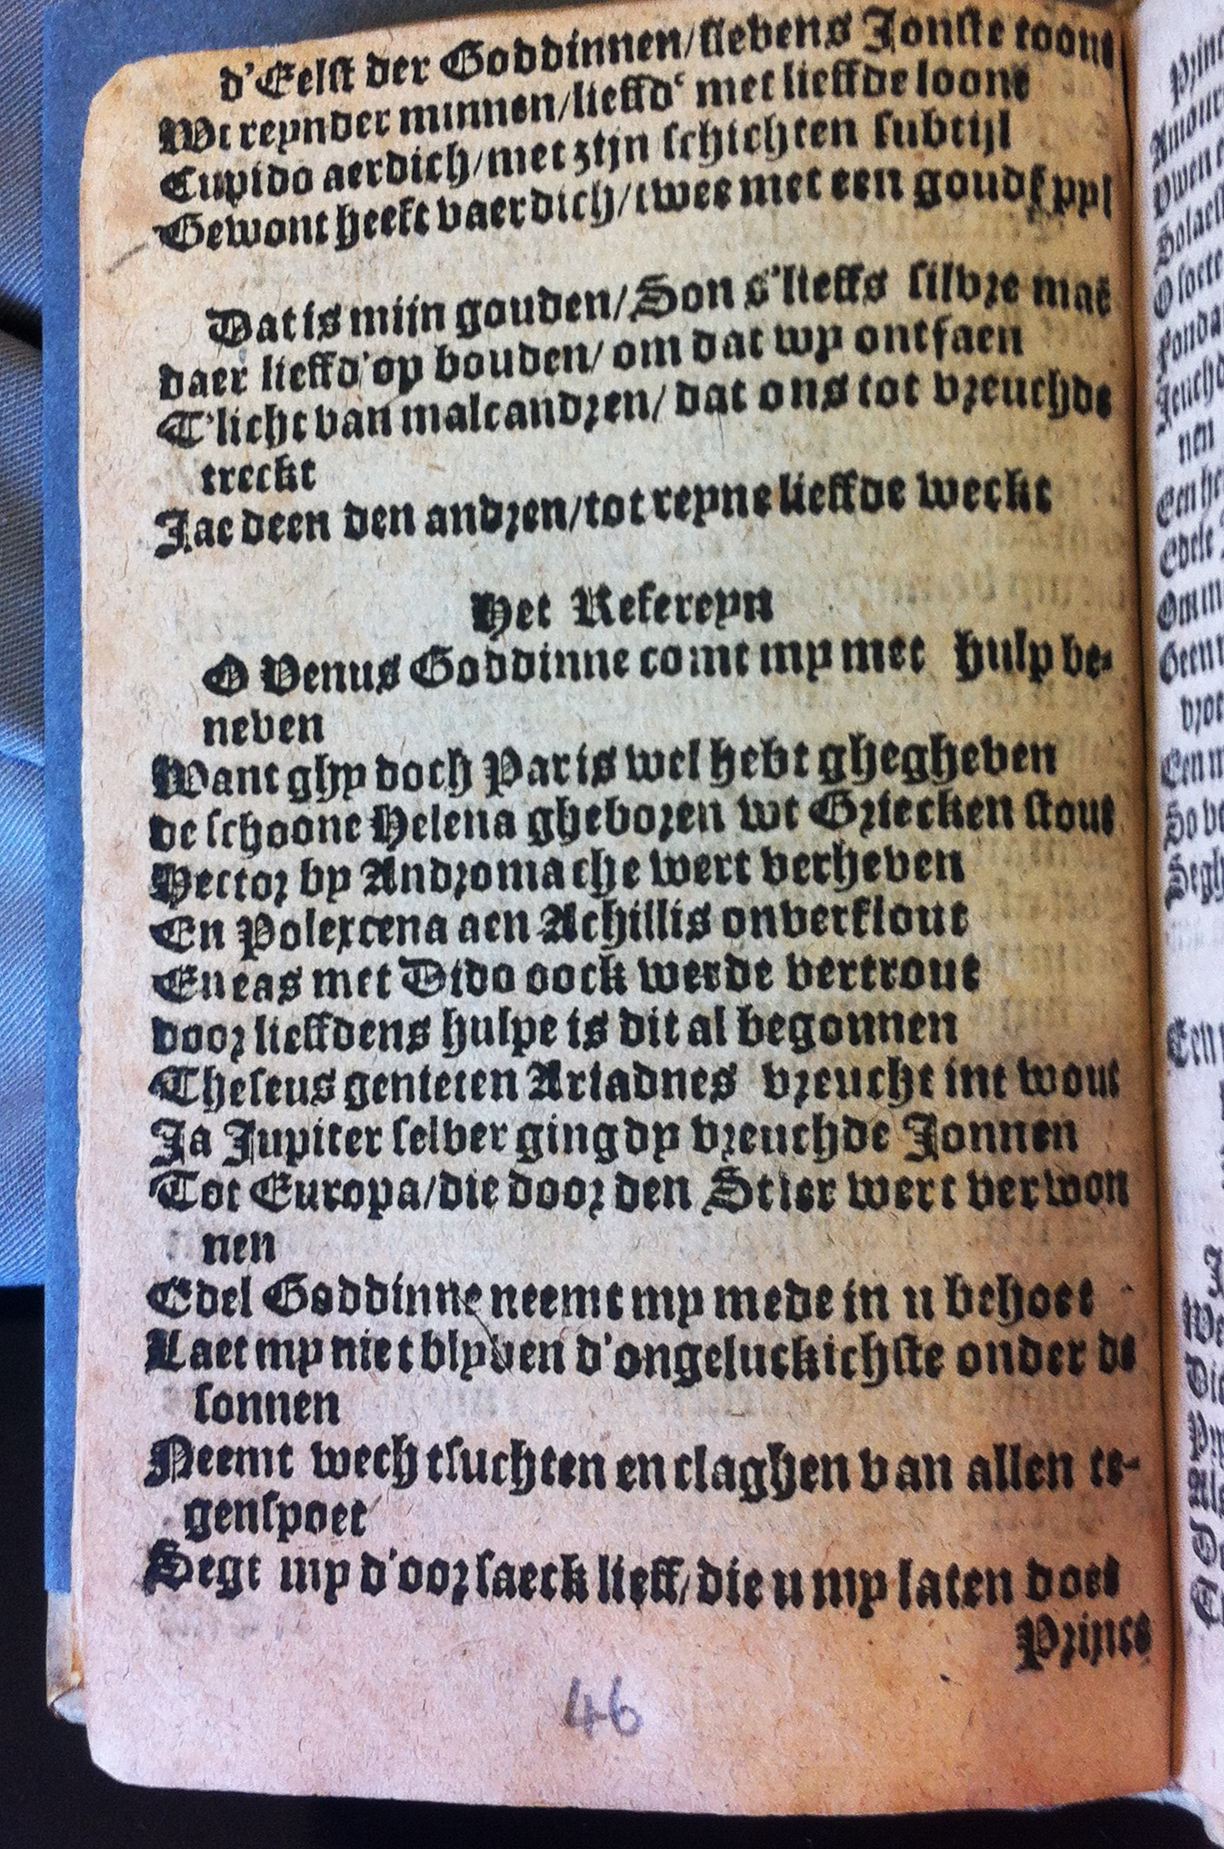 d'Eelst der Goddinnen/lievens Jonste toont
Wt reynder minnen/lieffd' met lieffde loont
Cupido aerdich/met zijn schichten subtijl
Gewont heeft vaerdich/twee met een goudẽ pyl
Dat is mijn gouden/Son s'lieffs silvre maẽ
daer lieffd'op bouden/om dat wy ontfaen
T'licht van malcandren/dat ons tot vreuchde
treckt
Jae deen den andren/tot reyne lieffde weckt
Het Refereyn
O Venus Goddinne comt my met hulp be-
neven
Want ghy doch Paris wel hebt ghegheven
de schoone Helena gheboren wt Griecken stout
Hector by Andromache wert verheven
En Polexcena aen Achillis onverflout
Eneas met Dido oock werde vertrout
door lieffdens hulpe is dit al begonnen
Theseus genieten Ariadnes vreucht int wout
Ja Jupiter selver ging dy vreuchde Jonnen
Tot Europa/die door den Stier wert verwon
nen
Edel Goddinne neemt my mede in u behoet
Laet my niet blyven d'ongeluckichste onder de
sonnen
Neemt wech tsuchten en claghen van allen te-
genspoet
Segt my d'oorsaeck lieff/die u my laten doet
Prince
46